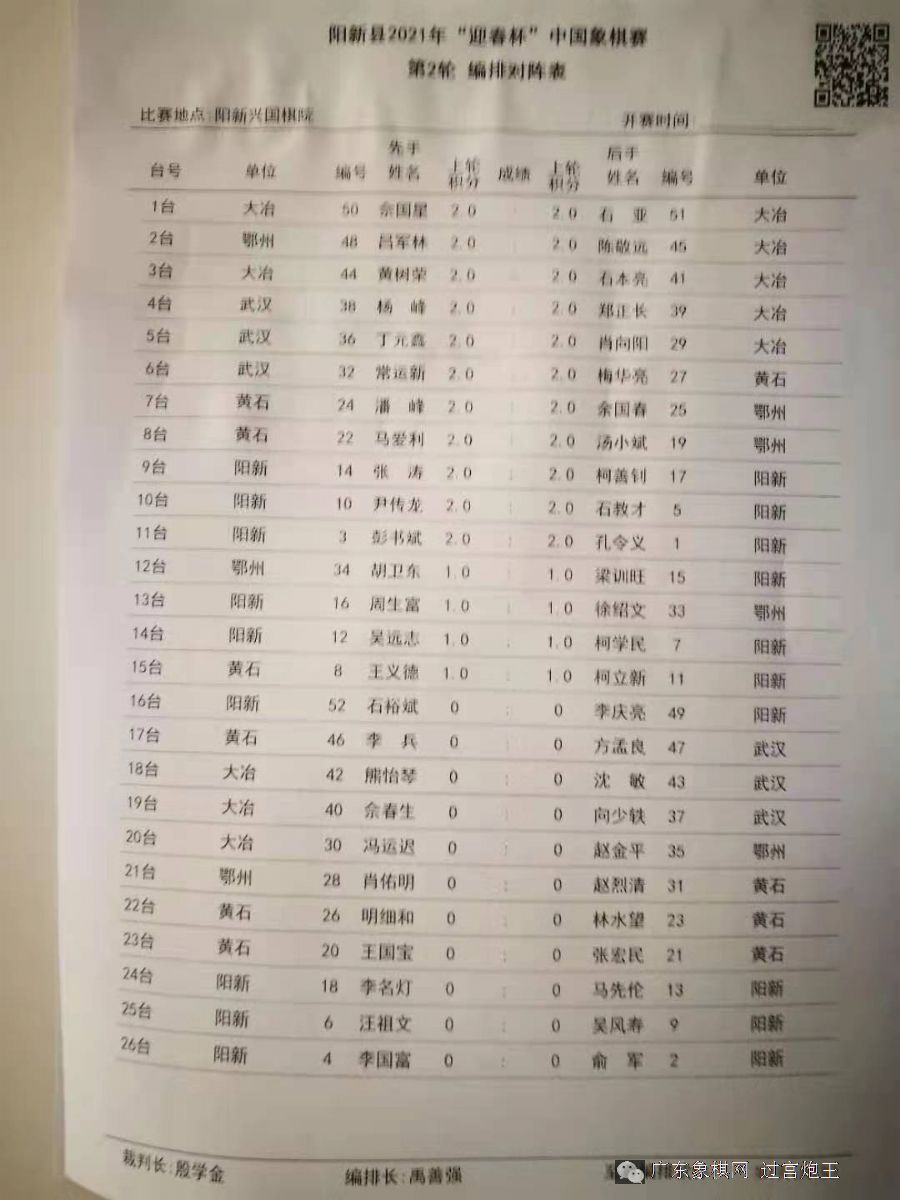 阳新县2021年“迎春杯”中国象棋赛
第2轮 编排对阵表
比赛地点:阳新兴国棋院 开赛时间
先手 后手
台号 单位 编号 姓名 上轮积分 成绩 上轮积分 姓名 编号 单位
1台 大冶 50 余国星 2.0 : 2.0 石 亚 51 大冶
2台 鄂州 48 吕军林 2.0 : 2.0 陈敬远 45 大冶
3台 大冶 44 黄树荣 2.0 : 2.0 石本亮 41 大冶
4台 武汉 38 杨 峰 2.0 : 2.0 郑正长 39 大冶
5台 武汉 36 丁元鑫 2.0 : 2.0 肖向阳 29 大冶
6台 武汉 32 常运新 2.0 : 2.0 梅华亮 27 黄石
7台 黄石 24 潘 峰 2.0 : 2.0 余国春 25 鄂州
8台 黄石 22 马爱利 2.0 : 2.0 汤小斌 19 鄂州
9台 阳新 14 张 涛 2.0 : 2.0 柯善钊 17 阳新
10台 阳新 10 尹传龙 2.0 : 2.0 石教才 5 阳新
11台 阳新 3 彭书斌 2.0 : 2.0 孔令义 1 阳新
12台 鄂州 34 胡卫东 1.0 : 1.0 梁训旺 15 阳新
13台 阳新 16 周生富 1.0 : 1.0 徐绍文 33 鄂州
14台 阳新 12 吴远志 1.0 : 1.0 柯学民 7 阳新
15台 黄石 8 王义德 1.0 : 1.0 柯立新 11 阳新
16台 阳新 52 石裕斌 0 : 0 李庆亮 49 阳新
17台 黄石 46 李 兵 0 : 0 方孟良 47 武汉
18台 大冶 42 熊怡琴 0 : 0 沈 敏 43 武汉
19台 大冶 40 余春生 0 : 0 向少轶 37 武汉
20台 大冶 30 冯运迟 0 : 0 赵金平 35 鄂州
21台 鄂州 28 肖佑明 0 : 0 赵烈清 31 黄石
22台 黄石 26 明细和 0 : 0 林水望 23 黄石
23台 黄石 20 王国宝 0 : 0 张宏民 21 黄石
24台 阳新 18 李名灯 0 : 0 马先伦 13 阳新
25台 阳新 6 汪祖文 0 : 0 吴风寿 9 阳新
26台 阳新 4 李国富 0 : 0 俞 军 2 阳新
裁判长:殷学金 编排长:禹善强
广东象棋网 过宫炮王